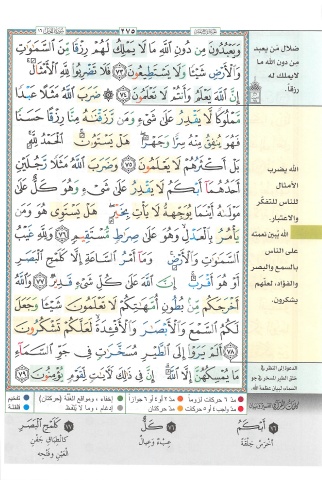 ٢٧٥
وَيَعْبُدُونَ مِن دُونِ ٱللَّهِ مَا لَا يَمْلِكُ لَهُمْ رِزْقًا مِّنَ ٱلسَّمَٰوَٰتِ
وَٱلْأَرْضِ شَيْـًٔا وَلَا يَسْتَطِيعُونَ ٧٣ فَلَا تَضْرِبُوا۟ لِلَّهِ ٱلْأَمْثَالَ
إِنَّ ٱللَّهَ يَعْلَمُ وَأَنتُمْ لَا تَعْلَمُونَ ٧٤ ضَرَبَ ٱللَّهُ مَثَلًا عَبْدًا
مَّمْلُوكًا لَّا يَقْدِرُ عَلَىٰ شَىْءٍ وَمَن رَّزَقْنَٰهُ مِنَّا رِزْقًا حَسَنًا
فَهُوَ يُنفِقُ مِنْهُ سِرًّا وَجَهْرًا هَلْ يَسْتَوُۥنَ ٱلْحَمْدُ لِلَّهِ
بَلْ أَكْثَرُهُمْ لَا يَعْلَمُونَ ٧٥ وَضَرَبَ ٱللَّهُ مَثَلًا رَّجُلَيْنِ
أَحَدُهُمَآ أَبْكَمُ لَا يَقْدِرُ عَلَىٰ شَىْءٍ وَهُوَ كَلٌّ عَلَىٰ
مَوْلَىٰهُ أَيْنَمَا يُوَجِّههُّ لَا يَأْتِ بِخَيْرٍ هَلْ يَسْتَوِى هُوَ وَمَن
يَأْمُرُ بِٱلْعَدْلِ وَهُوَ عَلَىٰ صِرَٰطٍ مُّسْتَقِيمٍ ٧٦ وَلِلَّهِ غَيْبُ
ٱلسَّمَٰوَٰتِ وَٱلْأَرْضِ وَمَآ أَمْرُ ٱلسَّاعَةِ إِلَّا كَلَمْحِ ٱلْبَصَرِ
أَوْ هُوَ أَقْرَبُ إِنَّ ٱللَّهَ عَلَىٰ كُلِّ شَىْءٍ قَدِيرٌ ٧٧ وَٱللَّهُ
أَخْرَجَكُم مِّنۢ بُطُونِ أُمَّهَٰتِكُمْ لَا تَعْلَمُونَ شَيْـًٔا وَجَعَلَ
لَكُمُ ٱلسَّمْعَ وَٱلْأَبْصَٰرَ وَٱلْأَفْـِٔدَةَ لَعَلَّكُمْ تَشْكُرُونَ
٧٨ أَلَمْ يَرَوْا۟ إِلَى ٱلطَّيْرِ مُسَخَّرَٰتٍ فِى جَوِّ ٱلسَّمَآءِ
مَا يُمْسِكُهُنَّ إِلَّا ٱللَّهُ إِنَّ فِى ذَٰلِكَ لَءَايَٰتٍ لِّقَوْمٍ يُؤْمِنُونَ ٧٩
ضلال من يعبد
من دون الله ما
لا يملك له
رزقاً.
الله يضرب
الأمثال
للناس للتفكّر
والاعتبار.
الله يُبيّن نعمته
على الناس
بالسمع والبصر
والفؤاد، لعلّهم
يشكرون.
الدعوة إلى النظر في
خلق الطير المسخر في جو
السماء، لبيان عظمة الله
مدّ ٦ حركات لزوماً مدّ ٢ أو ٤ أو ٦ جوازاً إخفاء، ومواقع الغُنّة (حركتان) تفخيم
مدّ واجب ٤ أو ٥ حركات مدّ حركتان إدغام، وما لا يُلفظ قلقلة
٧٦ أَبْكَمُ
أخرس خلقة
٧٦ كَلٌّ
عبء وعيال
٧٧ كَلَمْحِ الْبَصَرِ
كانطباق جفن
العين وفتحه